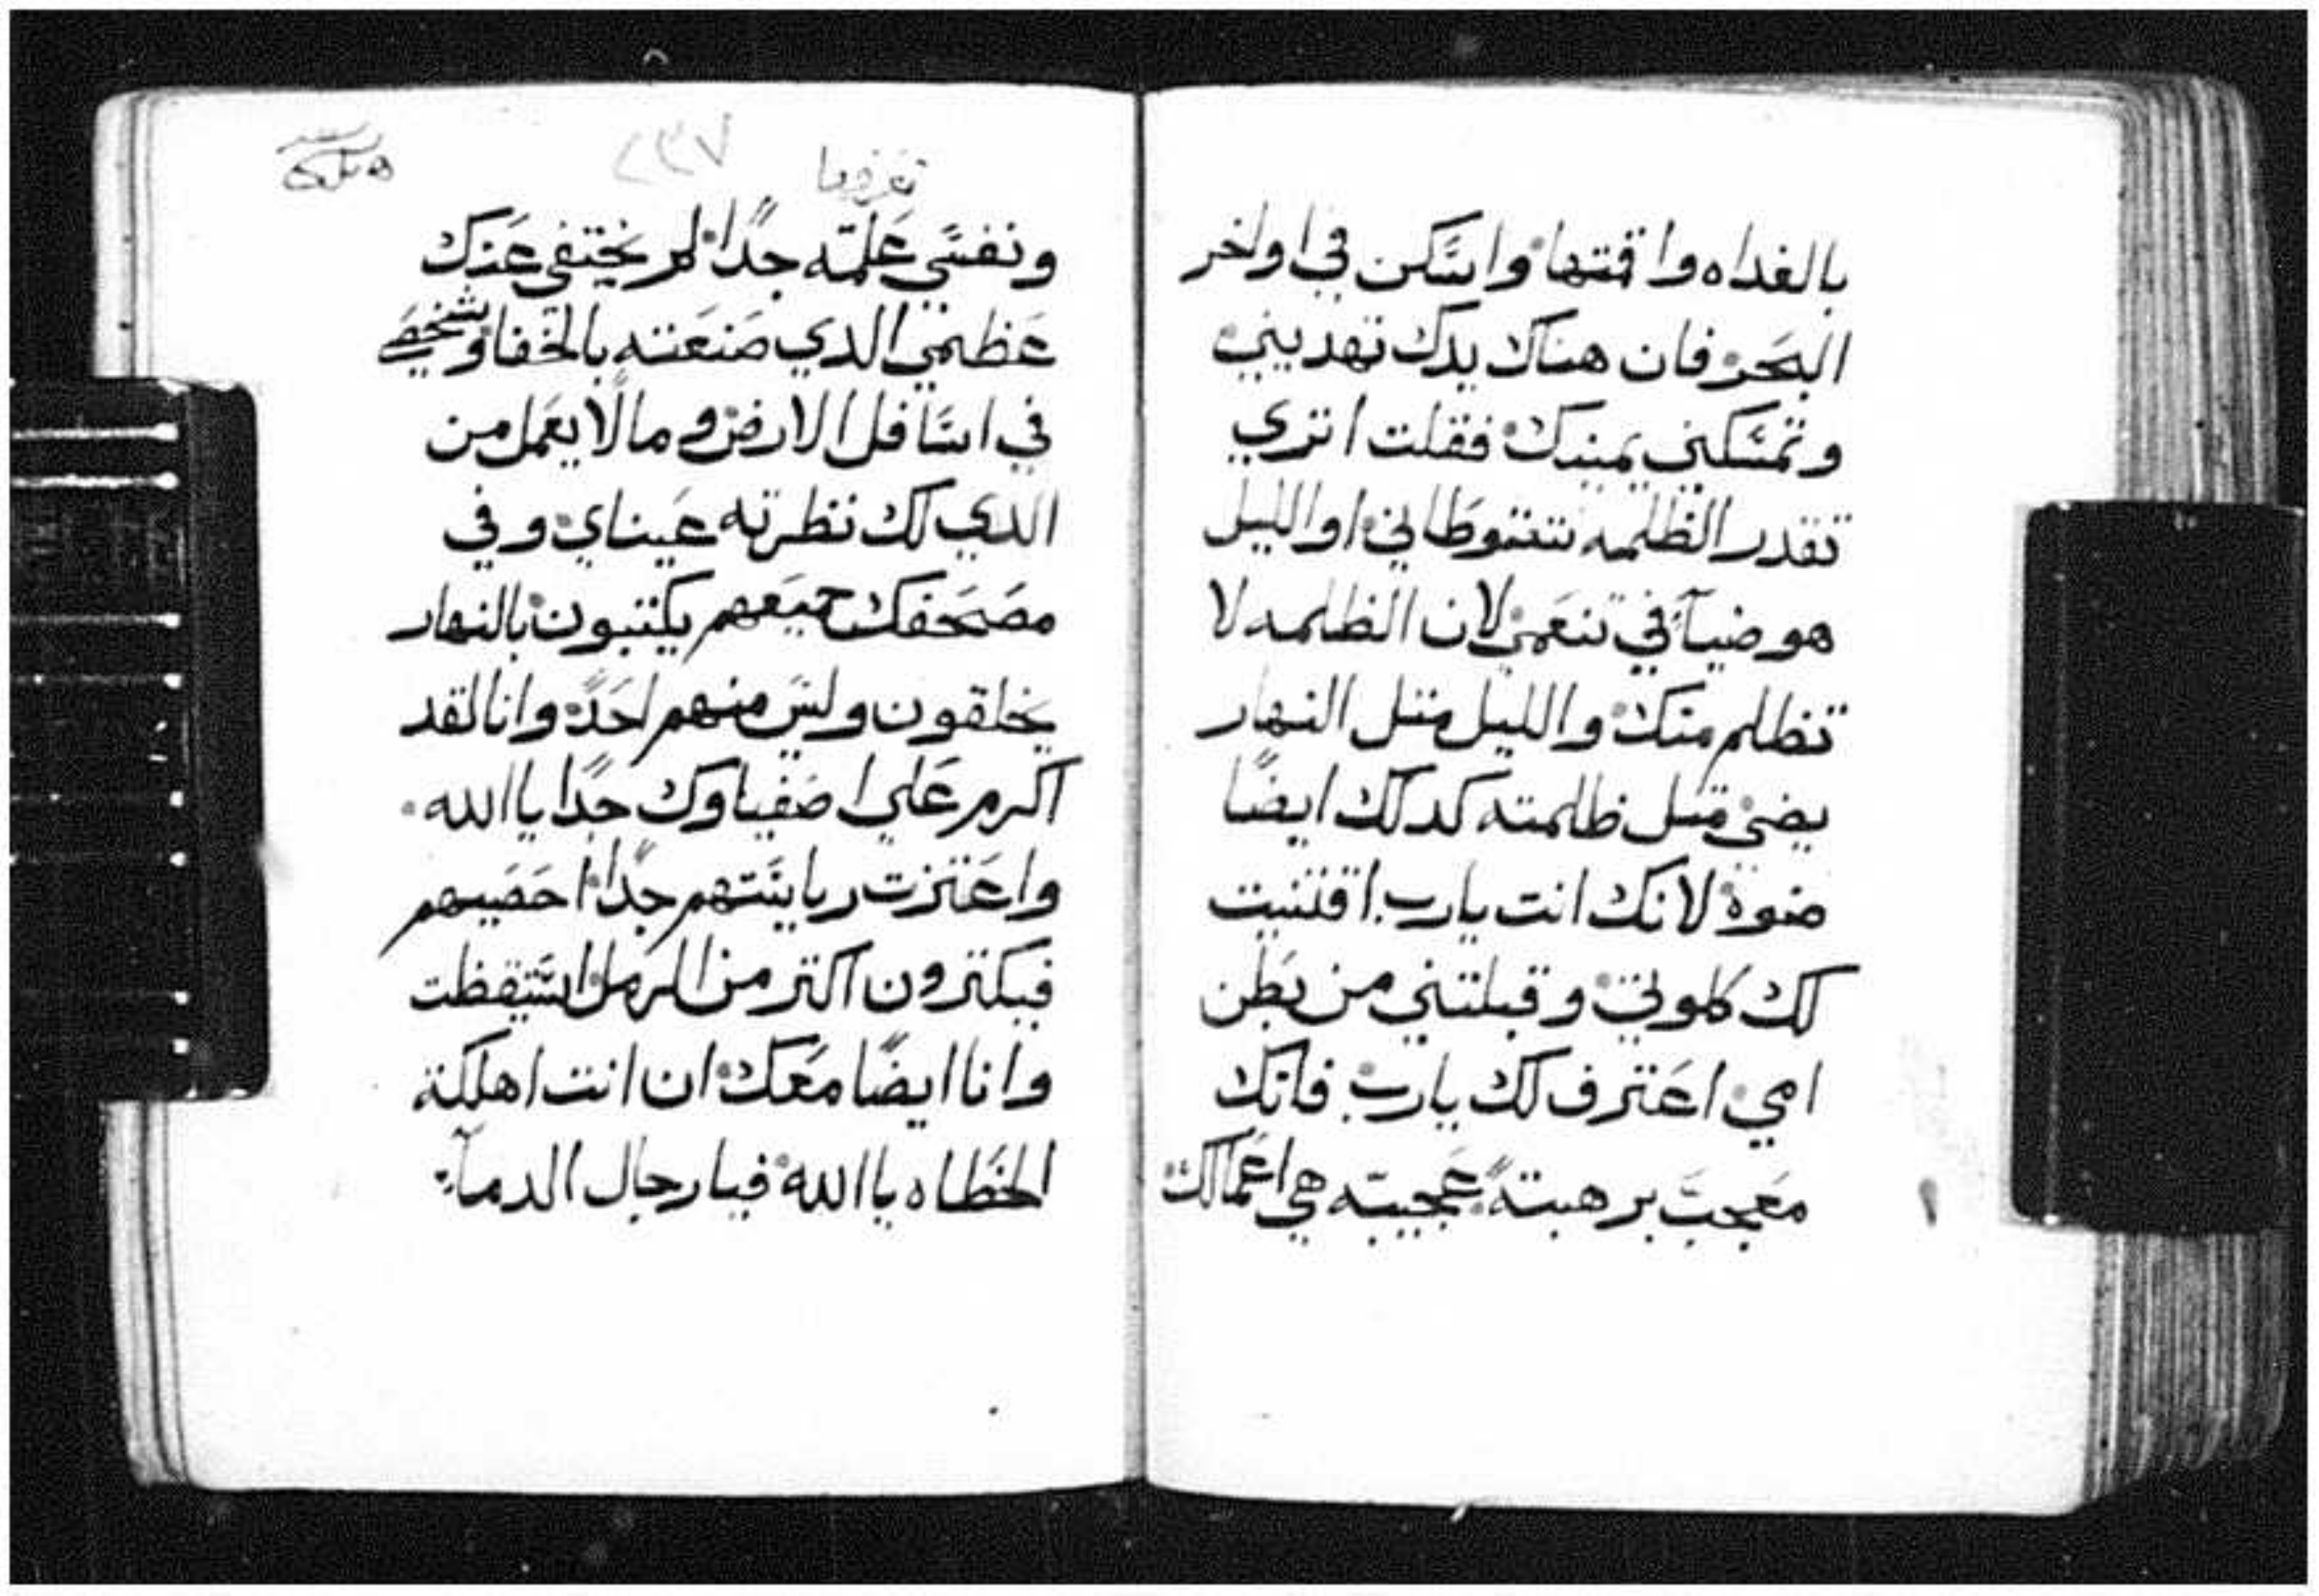 بالغداه واقمتها واسكن في اواخر
البحر فان هناك يدك تهديني
وتمسكني يمينك فقلت اتري
تقدر الظلمه تتوطاني او الليل
هو ضيآ في تنعمي لان الظلمه لا
تظلم منك والليل متل النهار
يضي متل ظلمته كدلك ايضًا
ضوه لانك انت يارب اقتنيت
لك كلوتي وقبلتني من بطن
امي اعترف لك يارب فانك
معجب برهبتة عجيبه هي اعمالك
٢٣٧
ونفسي علمته جدًا لم يختفي عنك
عظمي الدي صنعته بالخفا وشخصي
في اسافل الارض ومالا يعمل من
الدي لك نظرته عيناي وفي
مصحفك جميعهم يكتبون بالنهار
يخلقون وليس منهم احدً وانا لقد
اكرم علي اصفياوك جدًا ياالله
واعتزت رياستهم جدًا احصيهم
فيكترون اكتر من الرمل استيقظت
وانا ايضًا معك ان انت اهلكة
الخطاه ياالله فيا رجال الدمآ